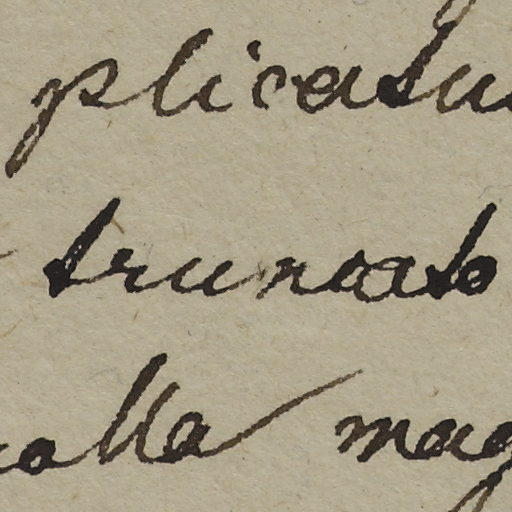 plicatu
truncato
calla mag